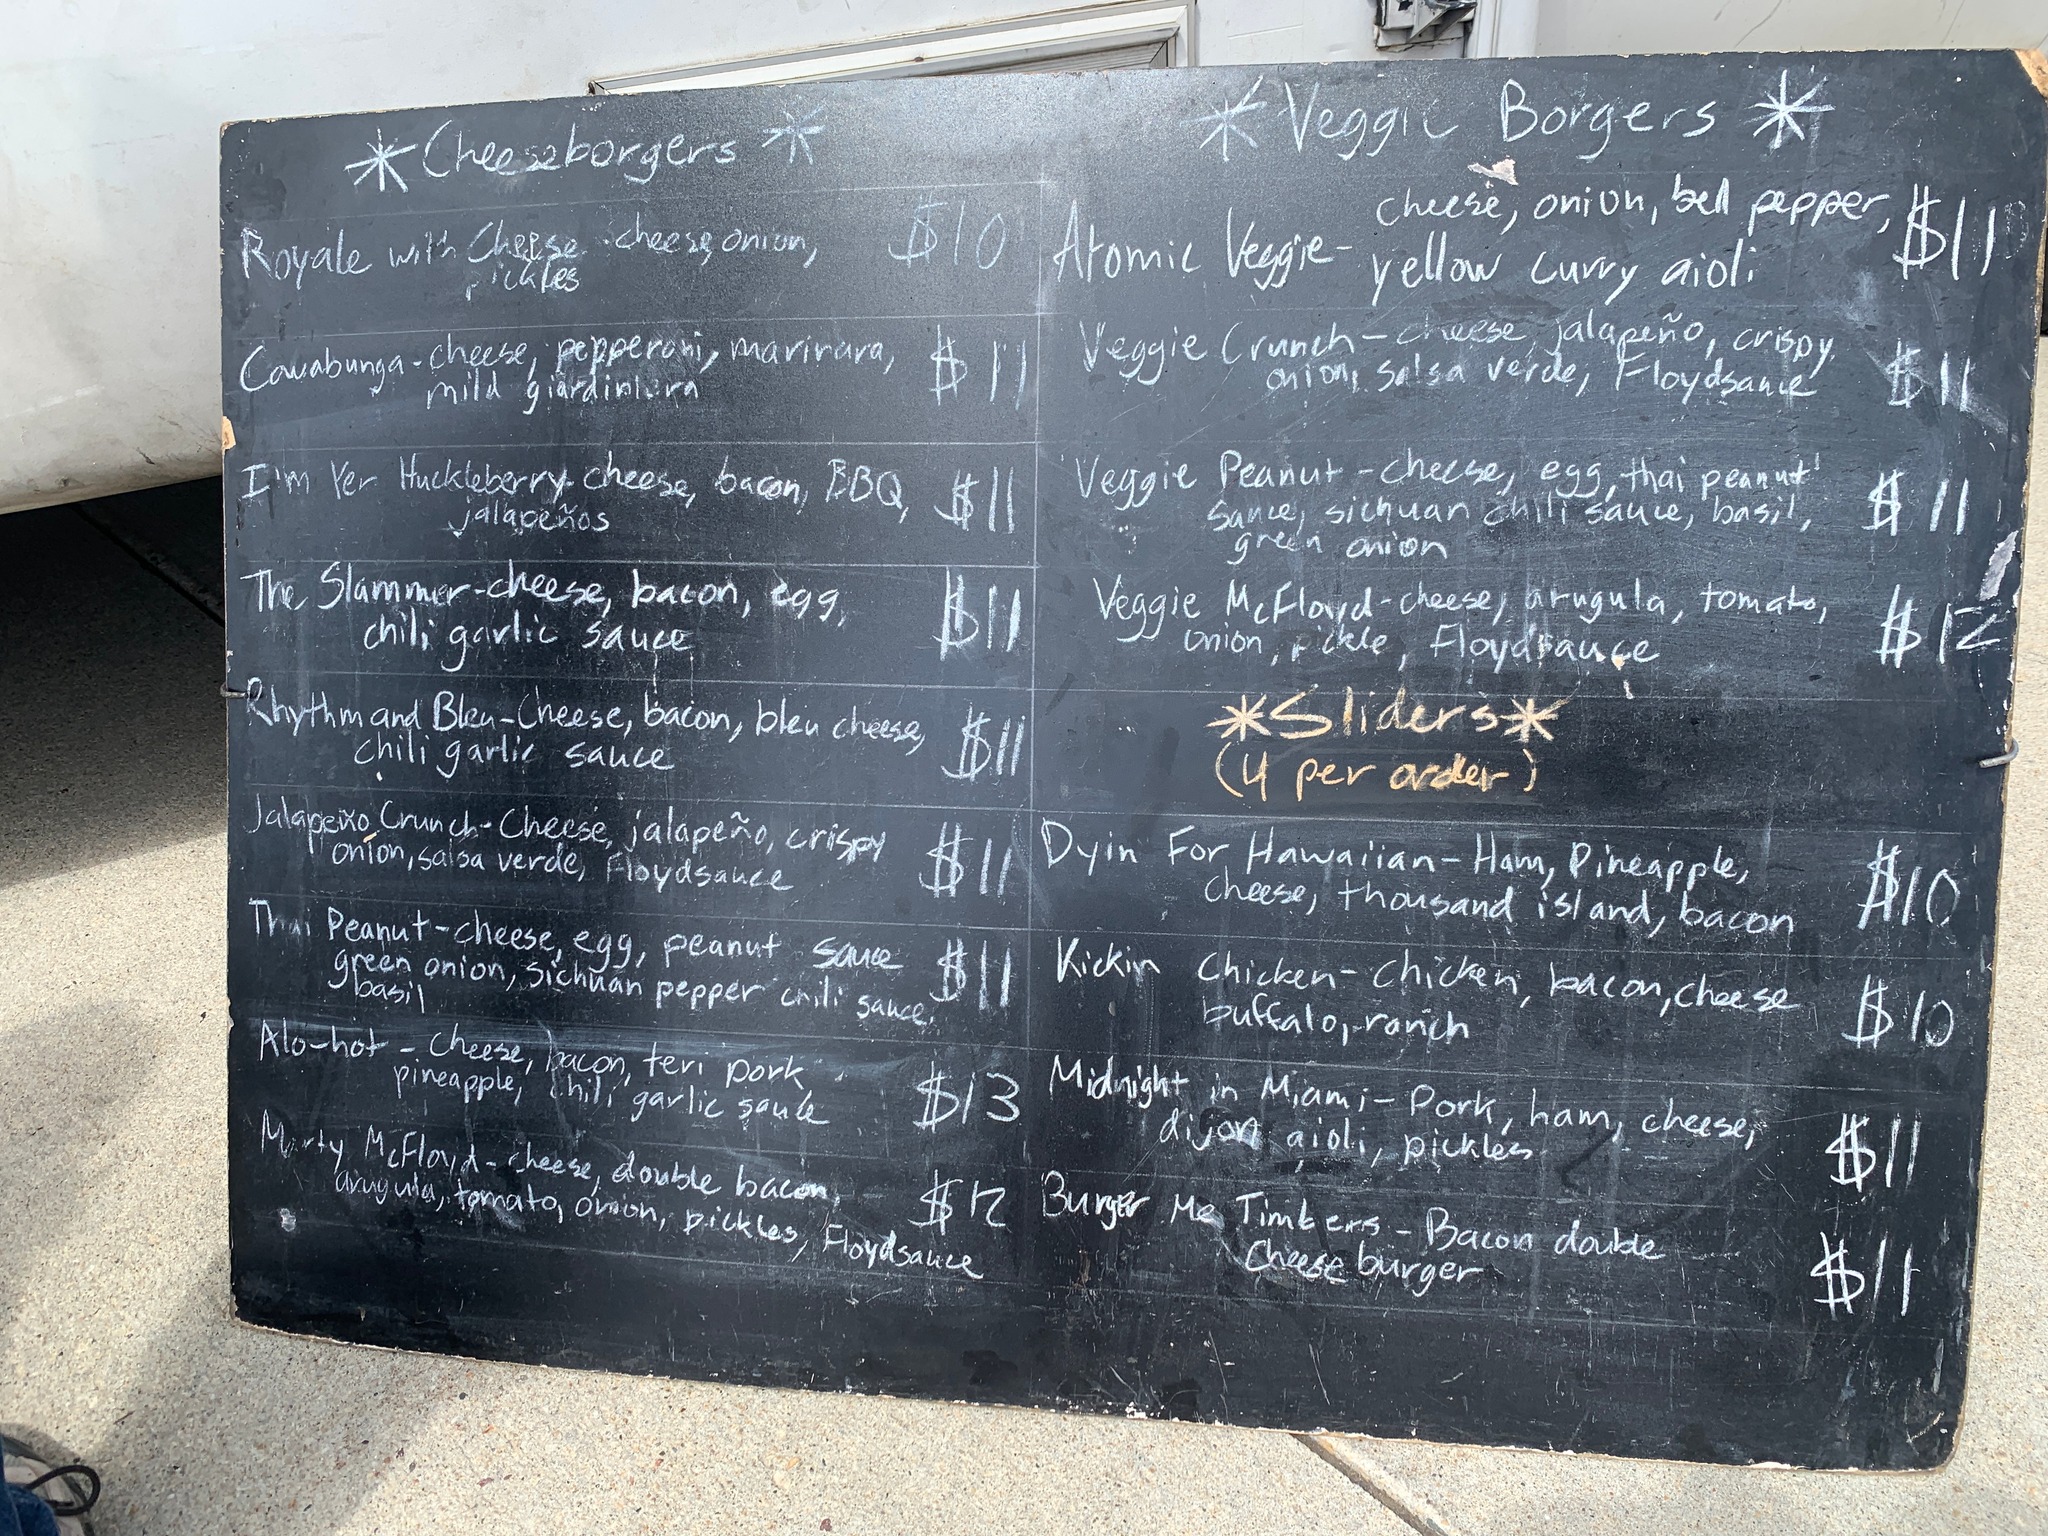 *Cheeseborgers*
Royale with Cheese - cheese, onion, $10
pickles
Cowabunga - cheese, pepperoni, marinara, $11
mild giardiniera
I'm Yer Huckleberry - cheese, bacon, BBQ, $11
jalapeños
The Slammer - cheese, bacon, egg, $11
chili garlic sauce
Rhythm and Bleu - Cheese, bacon, bleu cheese, $11
chili garlic sauce
Jalapeño Crunch - Cheese, jalapeño, crispy $11
onion, salsa verde, Floydsauce
Thai Peanut - cheese, egg, peanut sauce $11
green onion, sichuan pepper chili sauce,
basil
Alo-hot - cheese, bacon, teri pork $13
pineapple, chili garlic sauce
Marty McFloyd - cheese, double bacon, $12
arugula, tomato, onion, pickles, Floydsauce
*Veggie Borgers*
cheese, onion, bell pepper, $11
Atomic Veggie - yellow curry aioli
Veggie Crunch - cheese, jalapeño, crispy $11
onion, salsa verde, Floydsauce
Veggie Peanut - cheese, egg, thai peanut $11
sauce, sichuan chili sauce, basil,
green onion
Veggie McFloyd - cheese, arugula, tomato, $12
onion, pickle, Floydsauce
*Sliders*
(4 per order)
Dyin For Hawaiian - Ham, Pineapple, $10
cheese, thousand island, bacon
Kickin Chicken - Chicken, bacon, cheese $10
buffalo, ranch
Midnight in Miami - Pork, ham, cheese, $11
dijon aioli, pickles
Burger Me Timbers - Bacon double $11
Cheeseburger